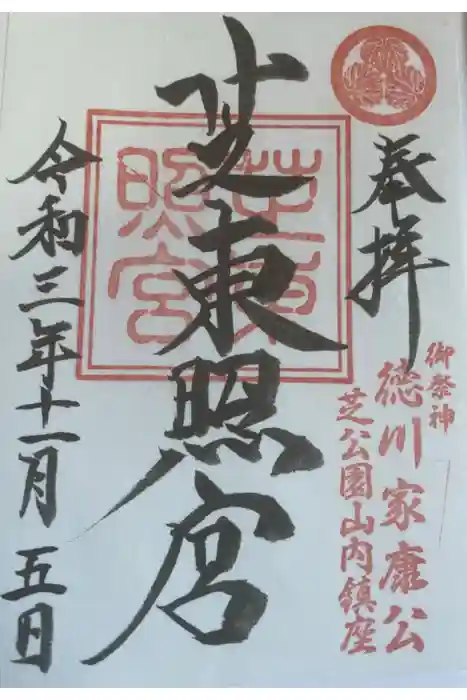 奉拝
御祭神
徳川家康公
芝公園山内鎮座
芝東照宮
芝東
照宮
令和三年十一月五日